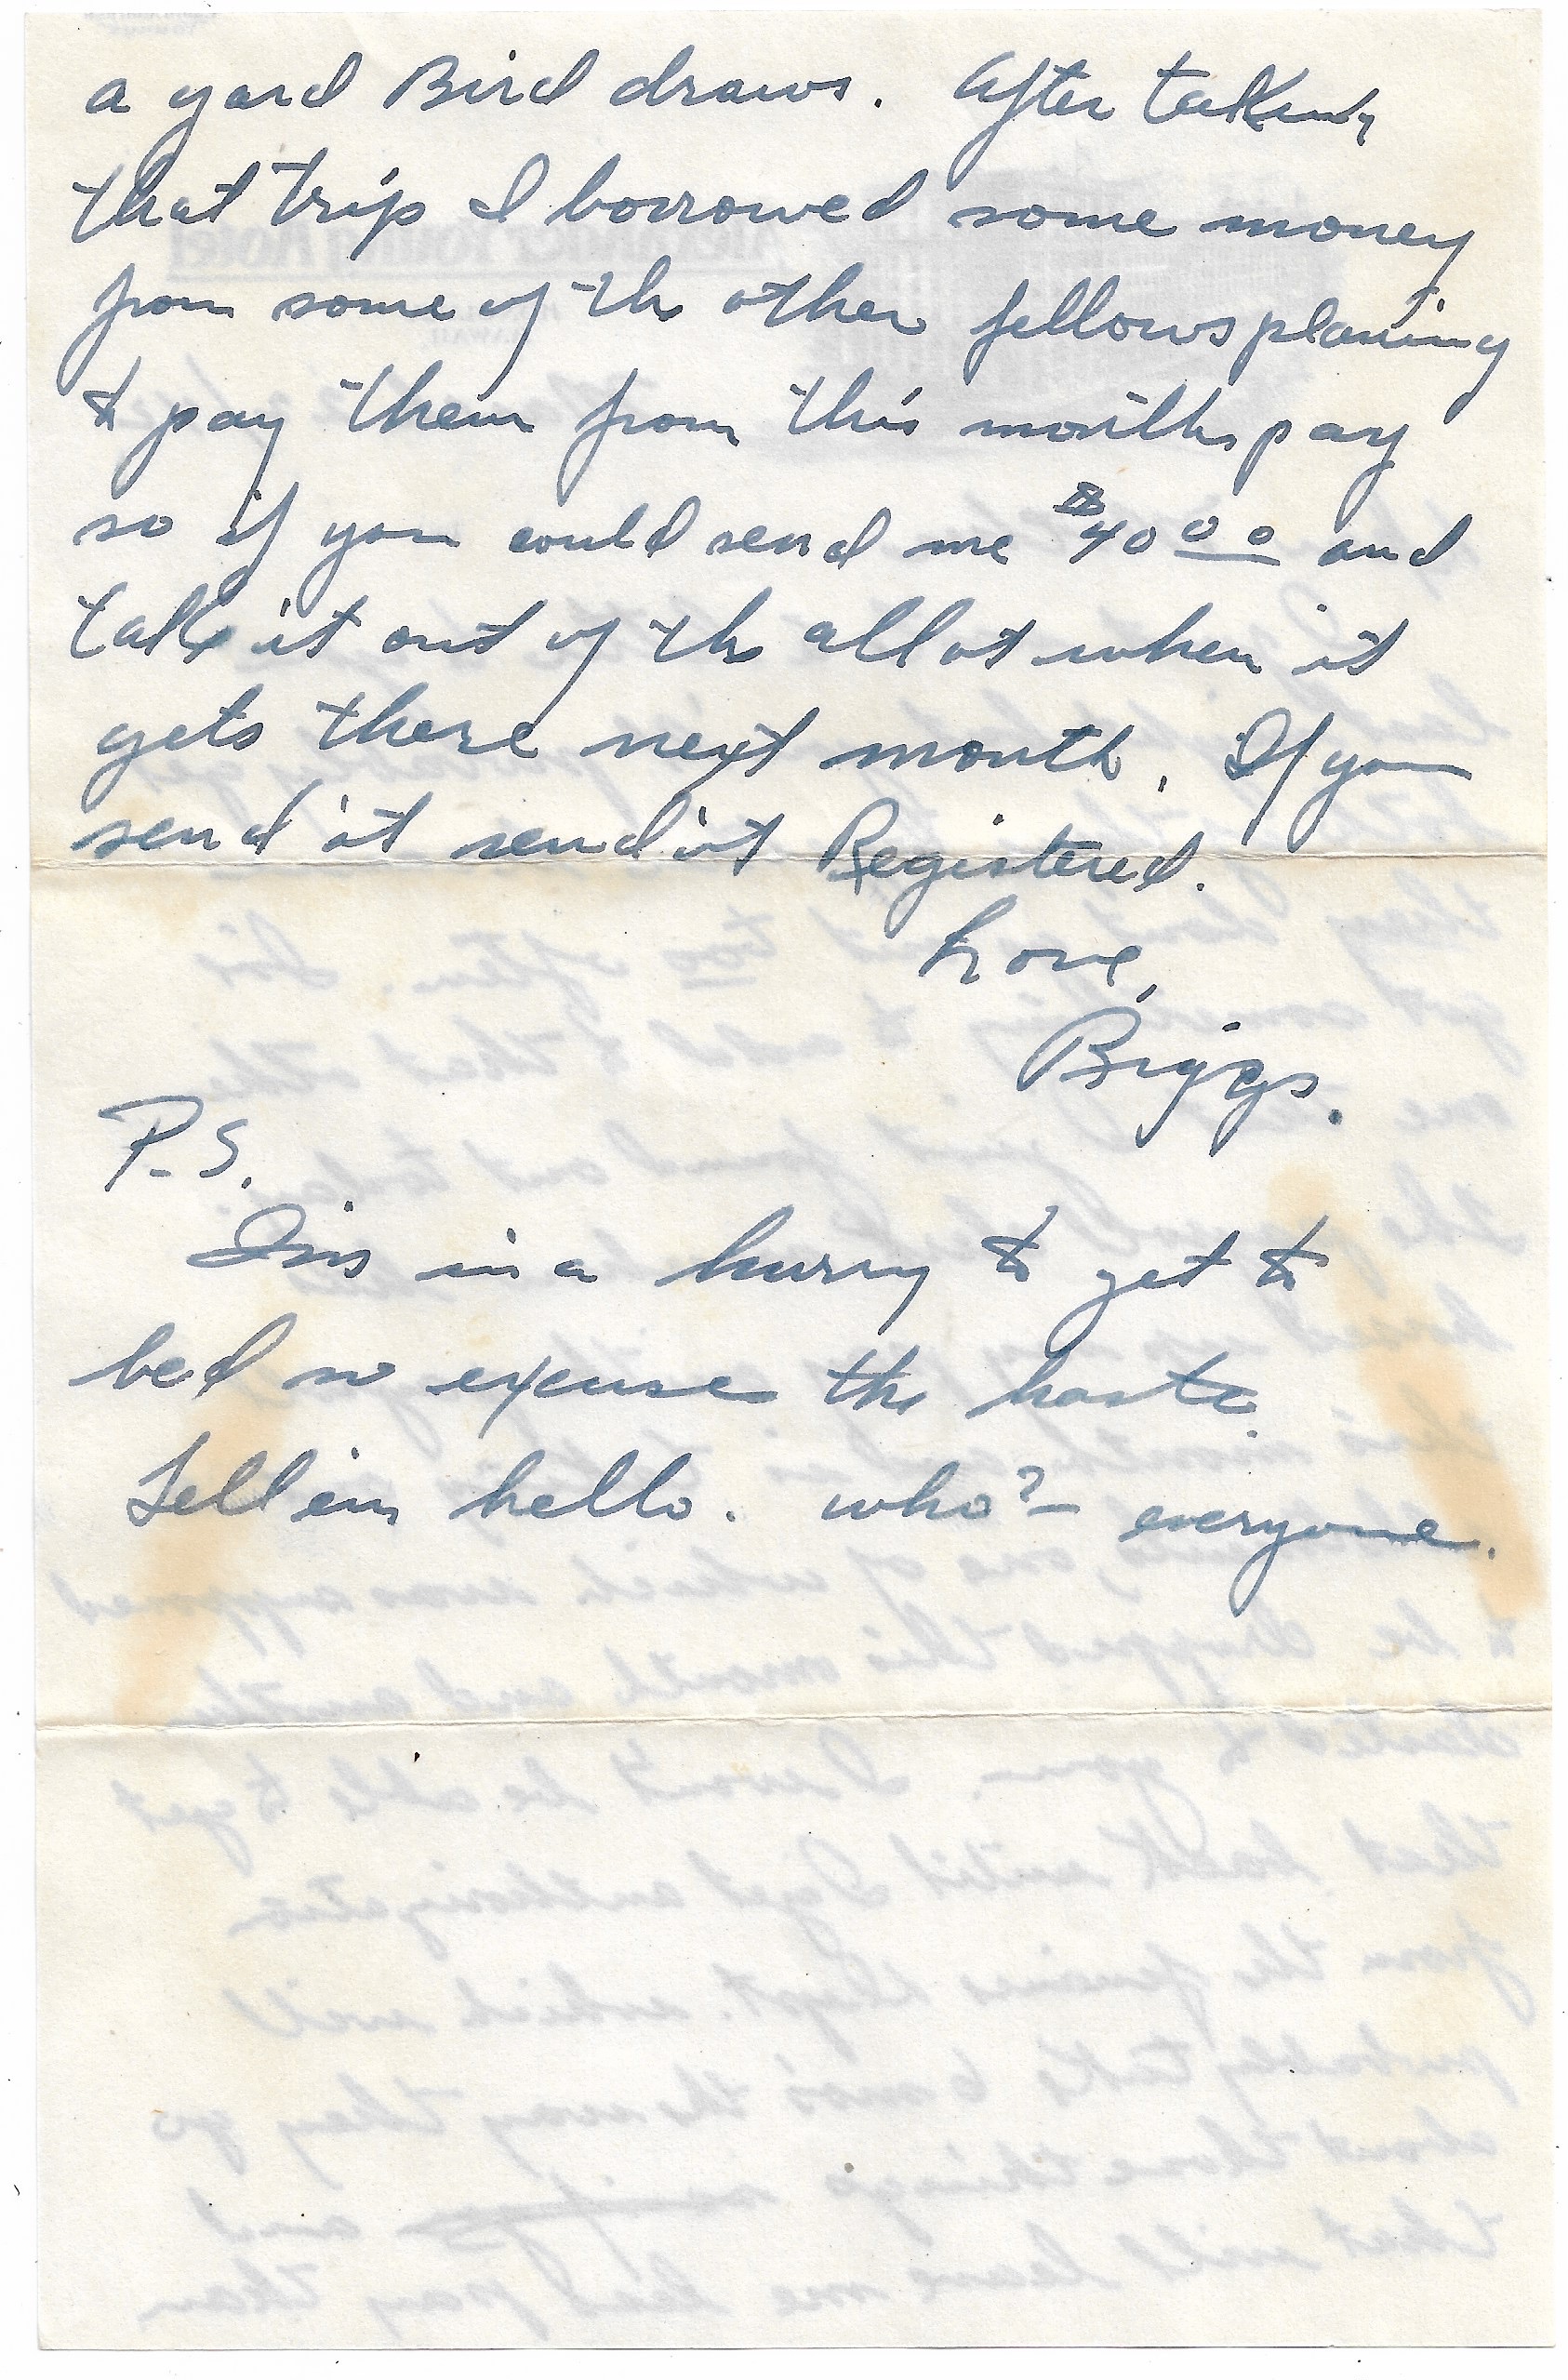 a yard Bird draws. After taking
that trip I borrowed some money
from some of the other fellows planing
to pay them from this months pay
so if you could send me $40 00 and
take it out of the allot when it
gets there next month. If you
send it send it Registered.
Love,
Biggs.
P.S.
I'm in a hurry to get to
bed so excuse the haste.
Tell em hello. who? – everyone.